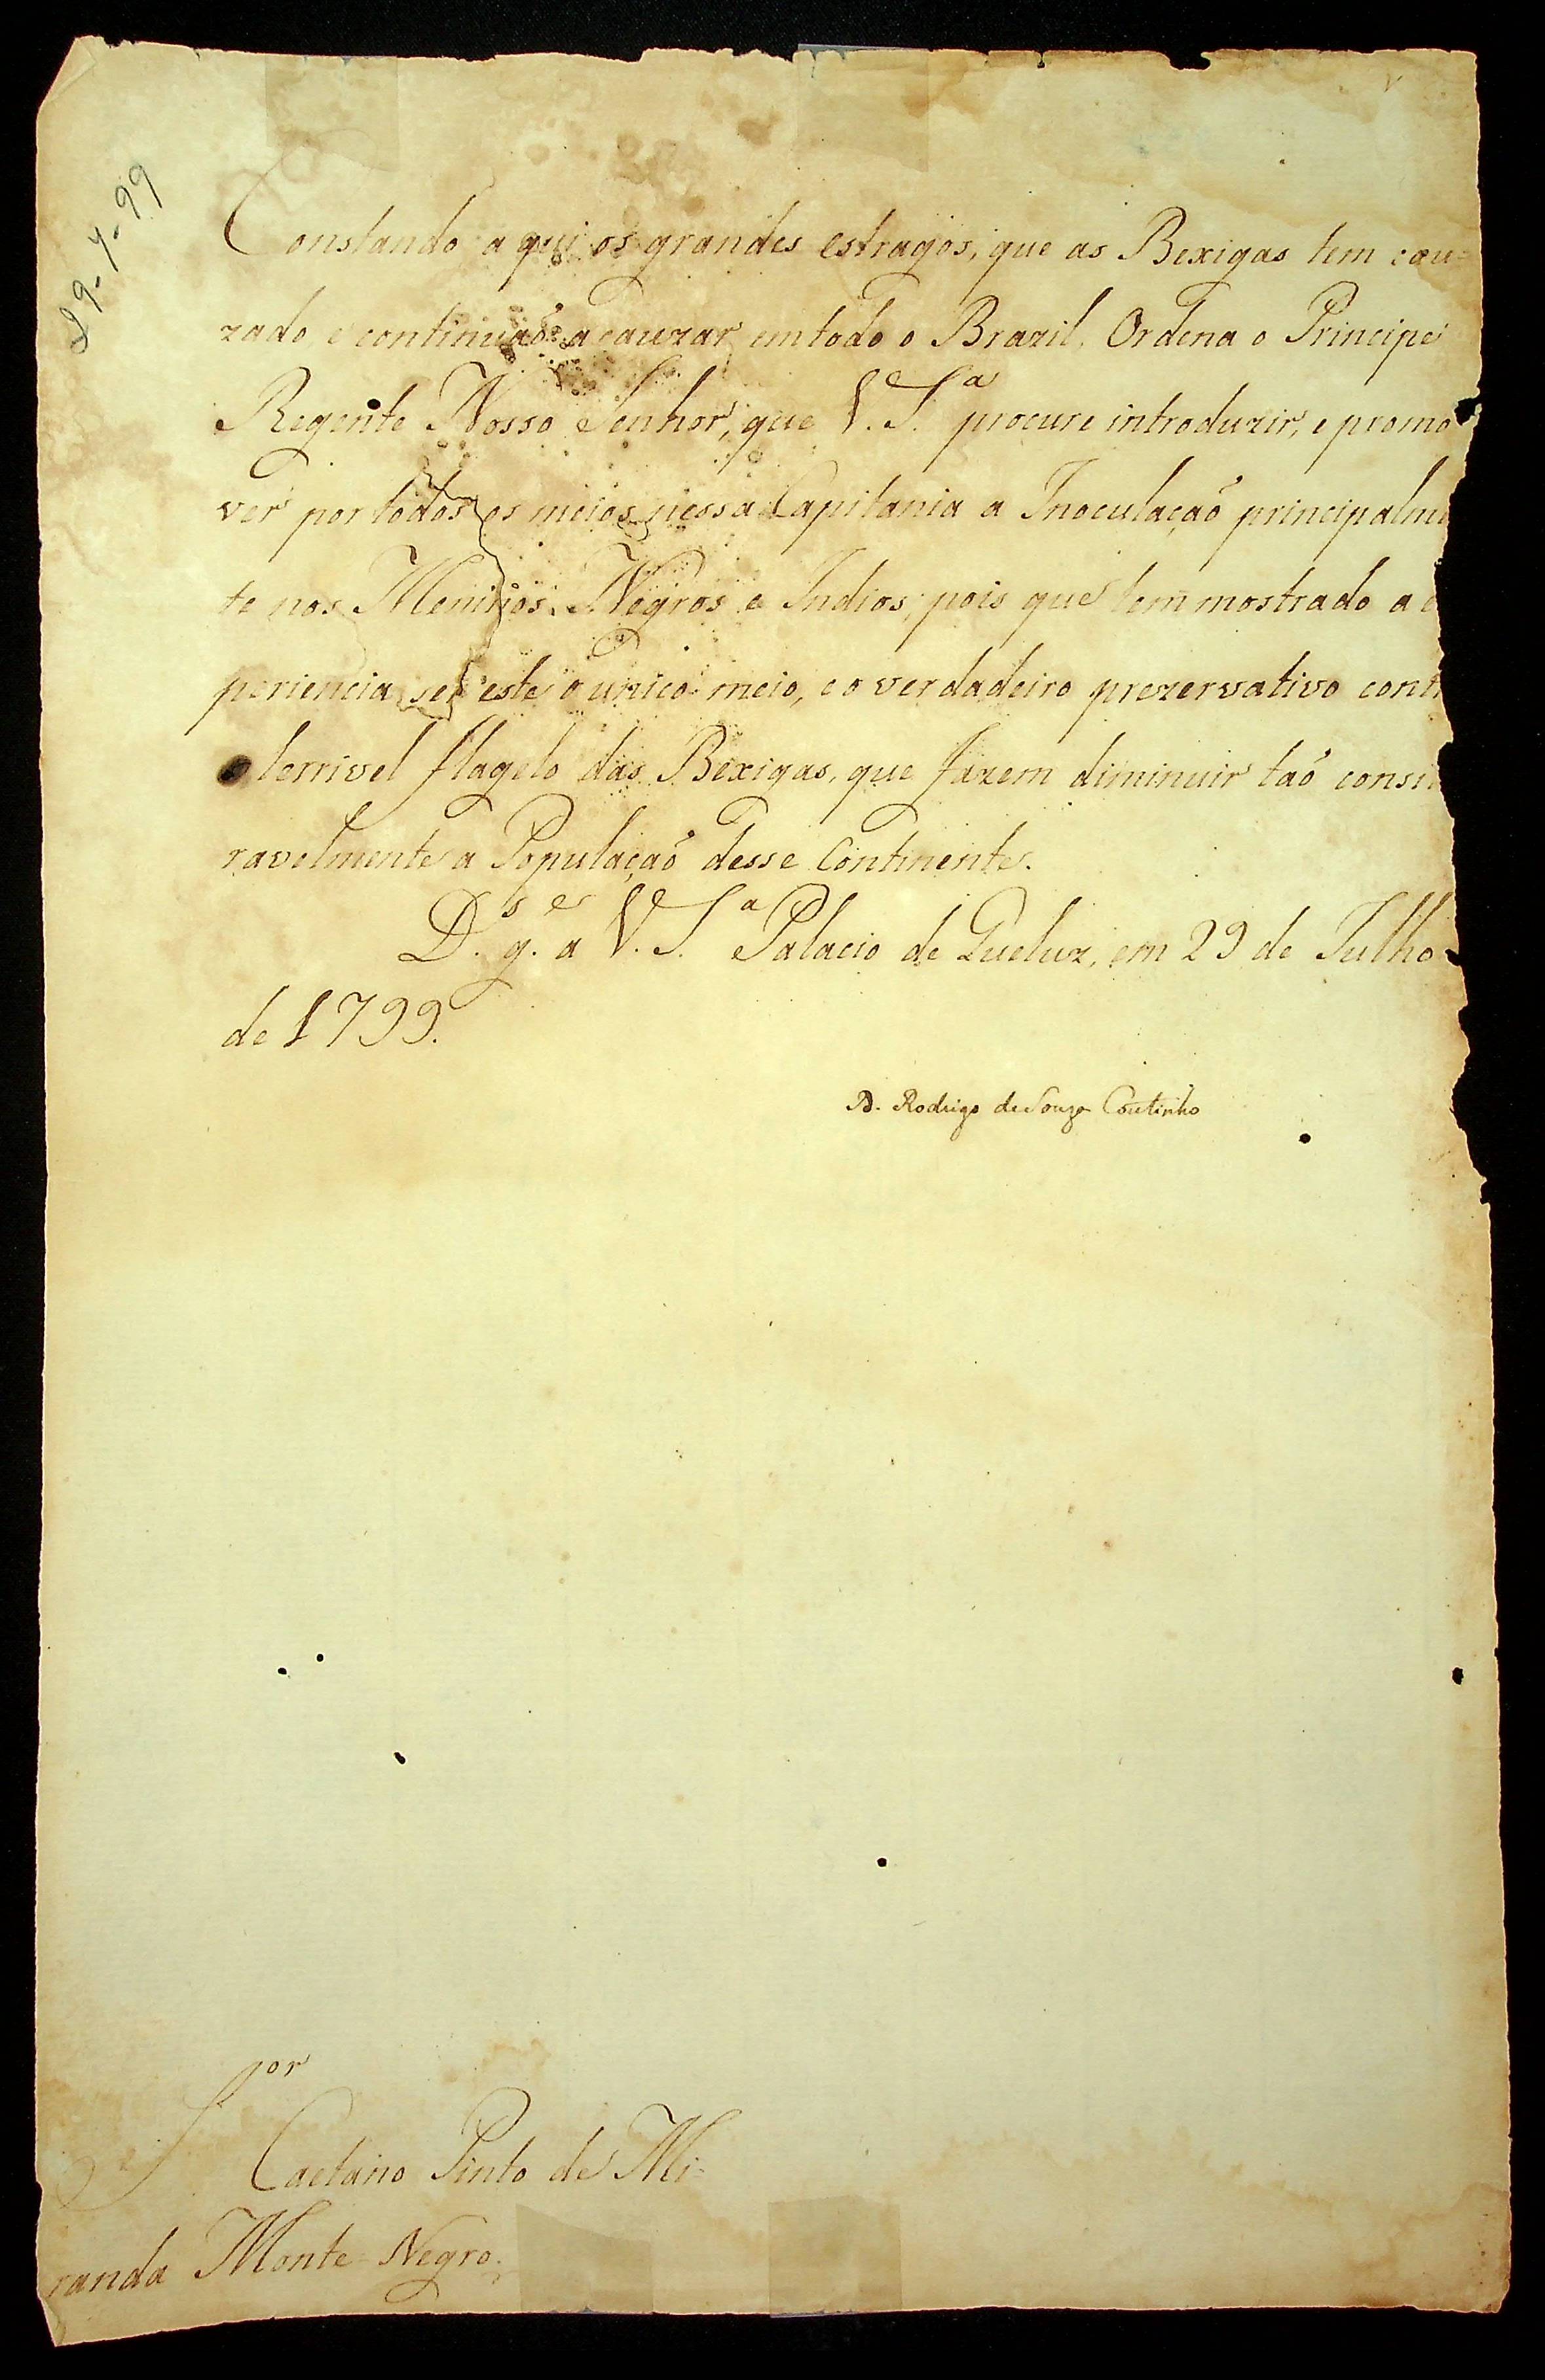 29-7-99
Constando aqui os grandes estragos, que as Bexigas tem cau=
zado, e continuaõ a cauzar em todo o Brazil, Ordena o Principe
Regente Nosso Senhor, que V. S.ª procure introduzir, e promo
ver por todos os meios nessa Capitania a Inoculaçaõ principalme
te nos Meninos, Negros e Indios; pois que tem mostrado a e
periencia ser este o unico meio, e o verdadeiro prezervativo cont
o terrivel flagelo das Bexigas, que fazem diminuir taõ consi
ravelmente a Populaçaõ desse Continente.
D.s g.e a V. S.ª Palacio de Queluz, em 29 de Julho
de 1799.
D. Rodrigo de Souza Coutinho
S.or Caetano Pinto de Mi-
randa Monte Negro.